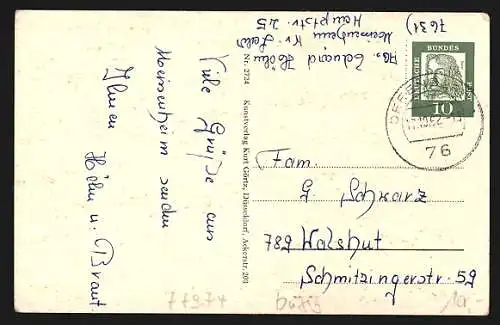 Viele Grüße aus
Meissenheim senden
Ihnen
Höhn u. Braut.
Nr. 2724 Kunstverlag Kurt Görtz, Düsseldorf, Ackerstr. 201
Abs. Eduard Höhn
Meissenheim Kr.
Hauptstr. 245
(7631)
DEUTSCHE BUNDES POST
10
76
Fam.
G Schwarz
789 Walshut
Schmitzingerstr. 59
77974
10,-